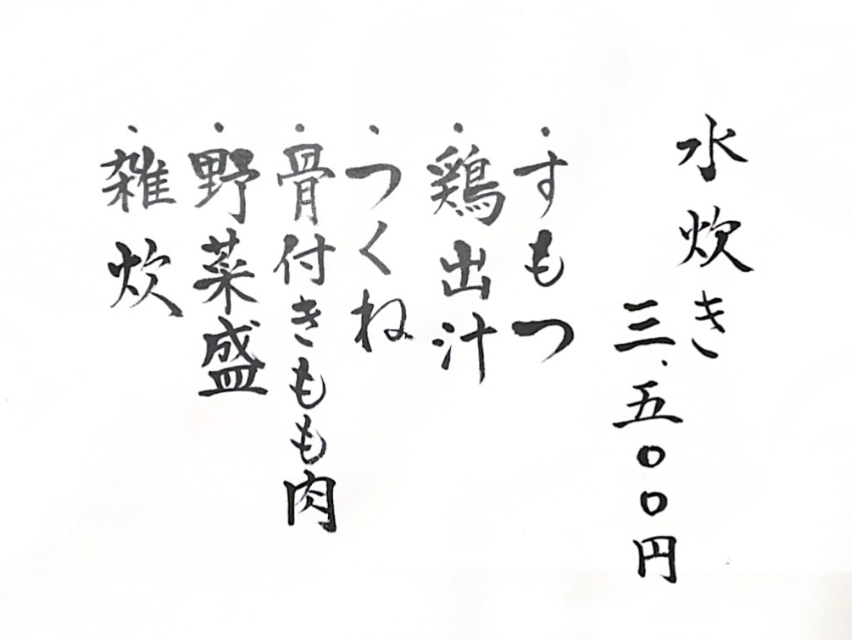 水炊き
三、五〇〇円
・すもつ
・鶏出汁
・つくね
・骨付きもも肉
・野菜盛
・雑炊